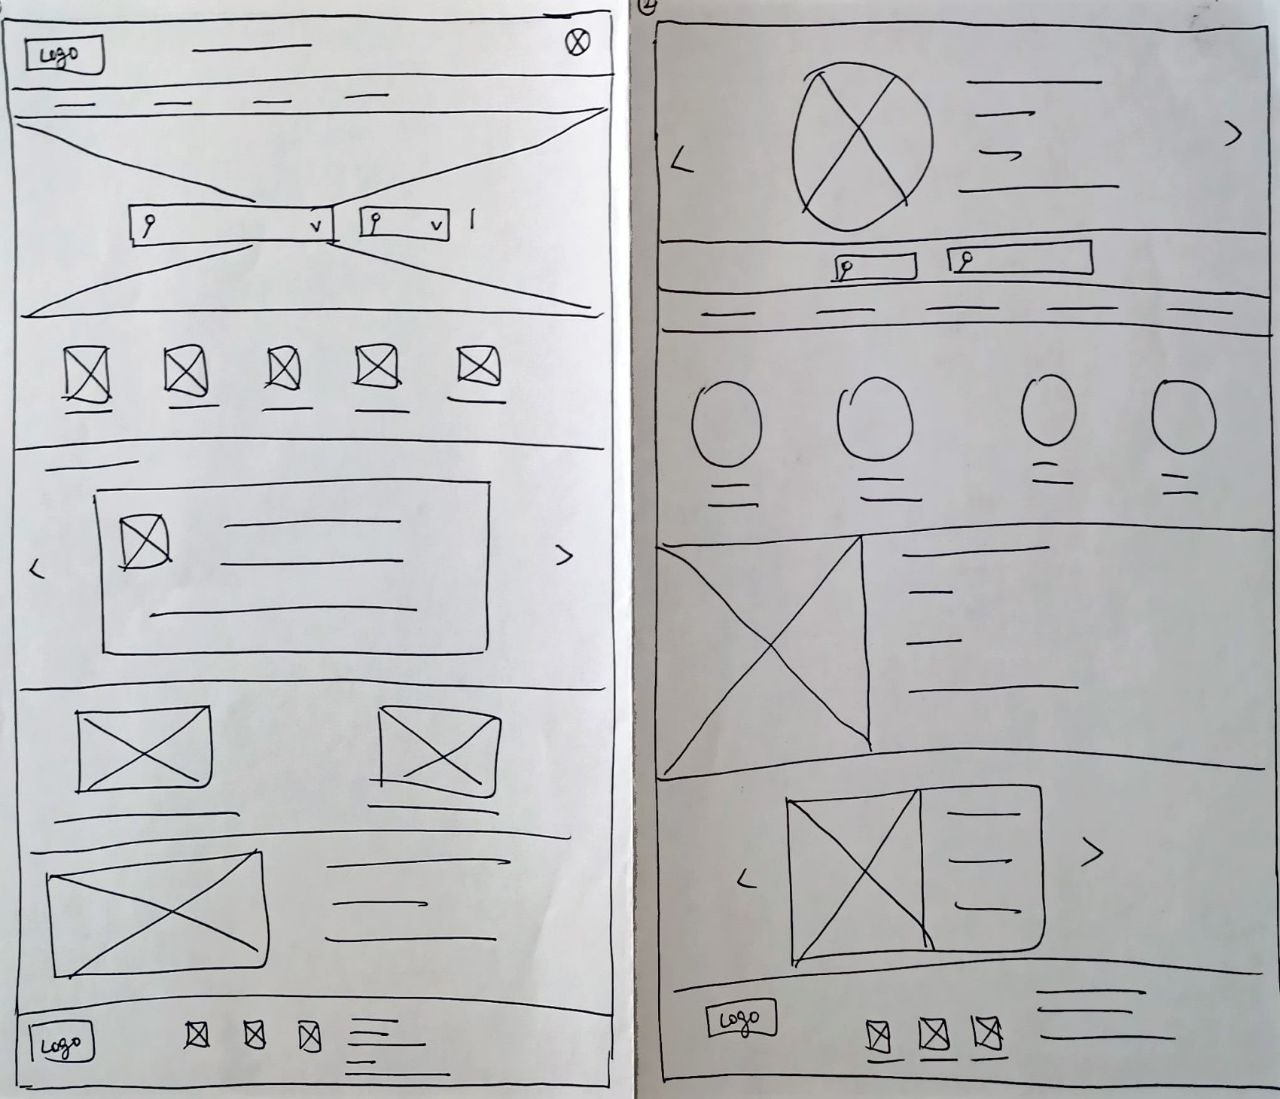 Logo
Logo
2
Logo